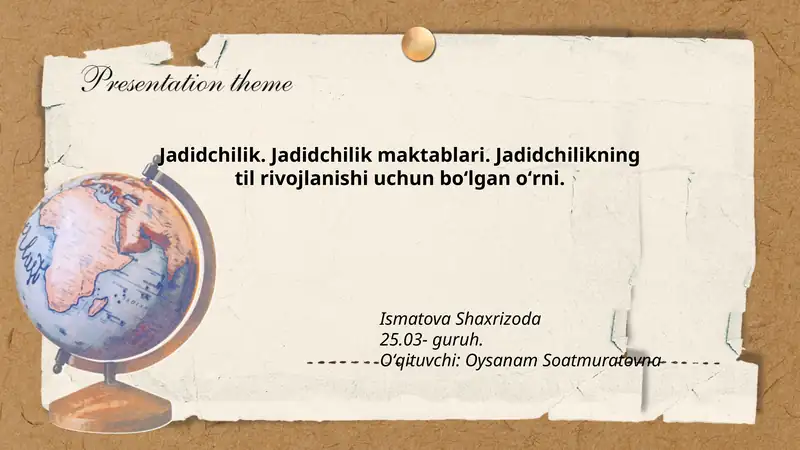 Presentation theme
Jadidchilik. Jadidchilik maktablari. Jadidchilikning
til rivojlanishi uchun bo‘lgan o‘rni.
Ismatova Shaxrizoda
25.03- guruh.
O‘qituvchi: Oysanam Soatmuratovna